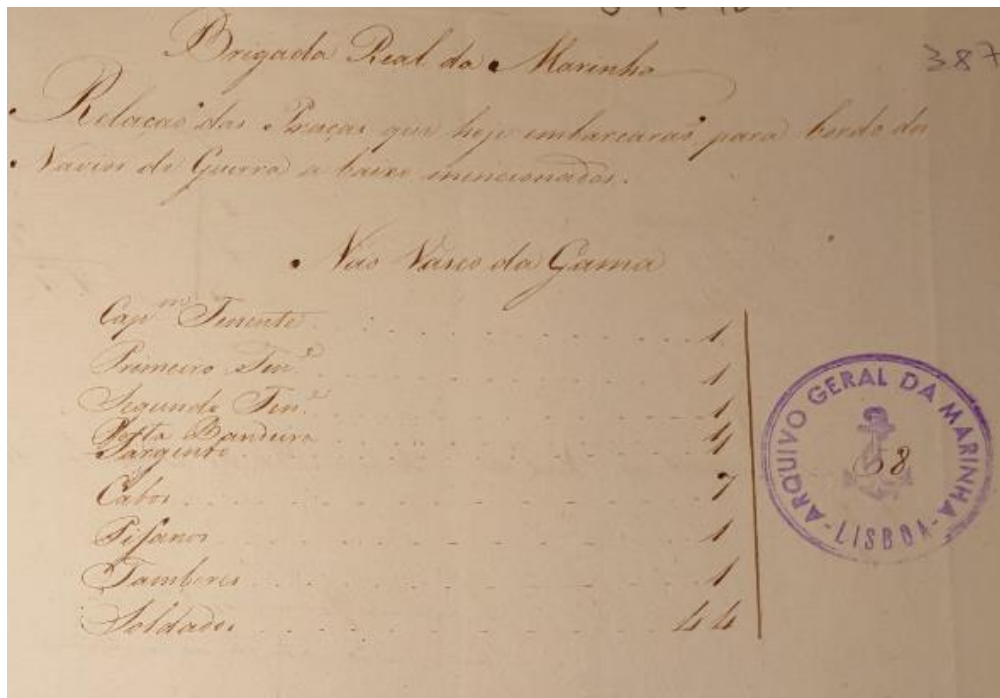 387
Brigada Real da Marinha
Relacaõ das Praças que hoje embarcaraõ para bordo dos
Navios de Guerra a baixo mencionados.
Náo Vasco da Gama
Cap.m Tenente 1
Primeiro Ten.e 1
Segundo Ten.e 1
Porta Bandeira 1
Sargento 1
Cabos 7
Pifanos 1
Tambores 1
Soldados 44
58
ARQUIVO GERAL DA MARINHA
-LISBOA-